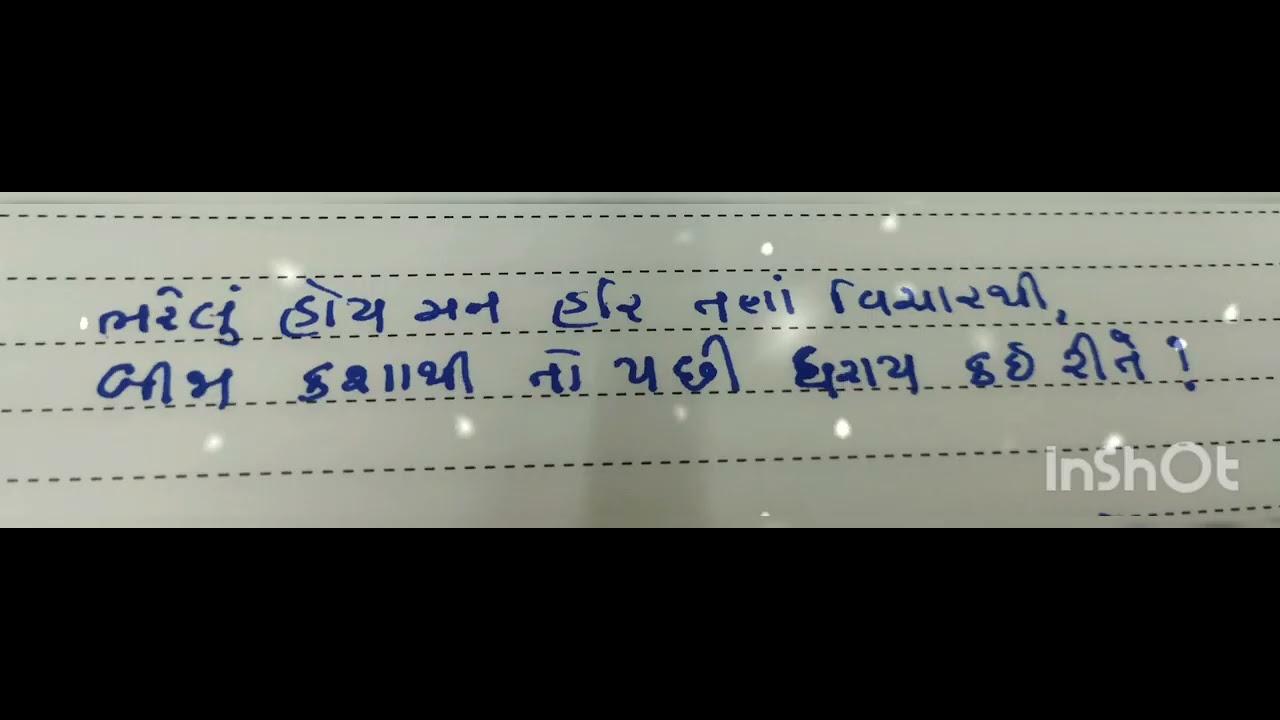 ભરેલું હોય મન હરિ તણાં વિચારથી,
બીજા કશાથી તો પછી ધરાય કઈ રીતે !
InShOt